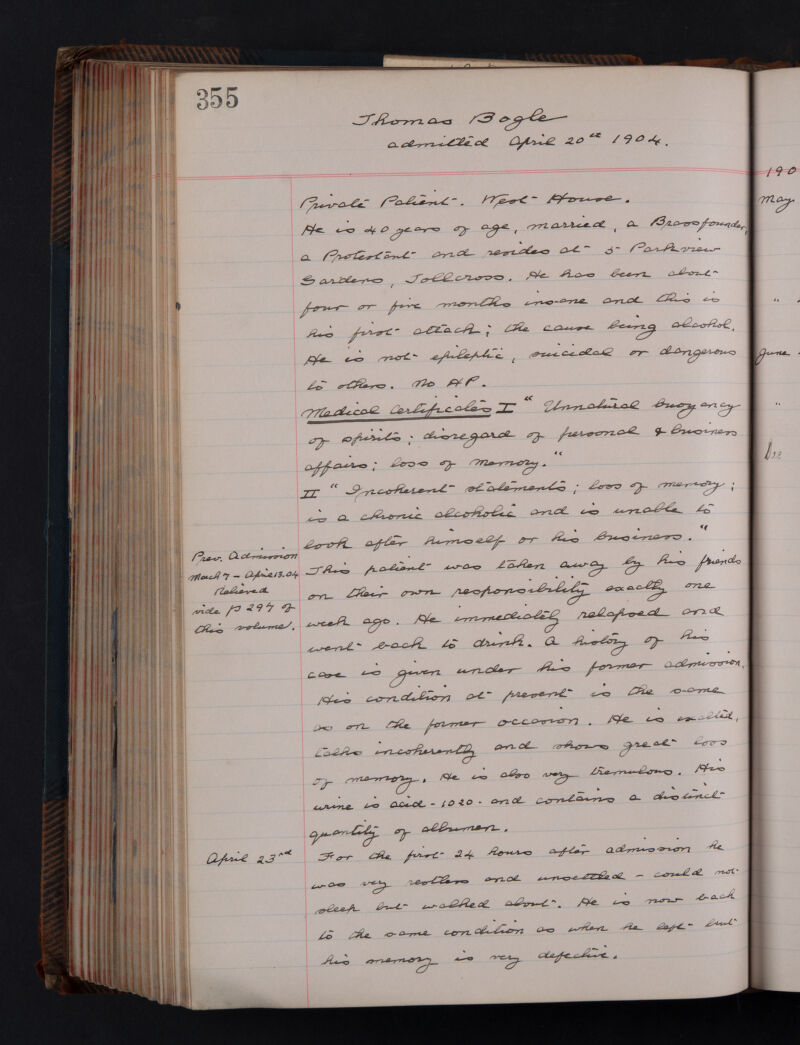 355
Thomas Bogle
admitted April 20th 1904.
Private Patient. West House.
He is 40 years of age, married, a Brassfounder,
a Protestant and resides at 5 Parkview
Gardens, Tollcross. He has been about
four or five months insane and this is
his first attack; the cause being alcohol.
He is not epileptic, suicidal or dangerous
to others. No HP.
Medical Certificates I "Unnatural buoyancy
of spirits; disregard of personal & business
affairs; loss of memory."
II "Incoherent statements; loss of memory;
is a chronic alcoholic and is unable to
look after himself or his business."
Prev. Admission
March 7 - April 13.04
Relieved
vide p 297 of
this volume.
This patient was taken away by his friends
on their own responsibility exactly one
week ago. He immediately relapsed and
went back to drink. A history of his
case is given under his former admission.
His condition at present is the same
as on the former occasion. He is exalted,
talks incoherently and shows great loss
of memory. He is also very tremulous. His
urine is acid - 1020 - and contains a distinct
quantity of albumen.
April 23rd
For the first 24 hours after admission he
was very restless and unsettled - could not
sleep but walked about. He is now back
to the same condition as when he left but
his memory is very defective.
190
May
"
June
"